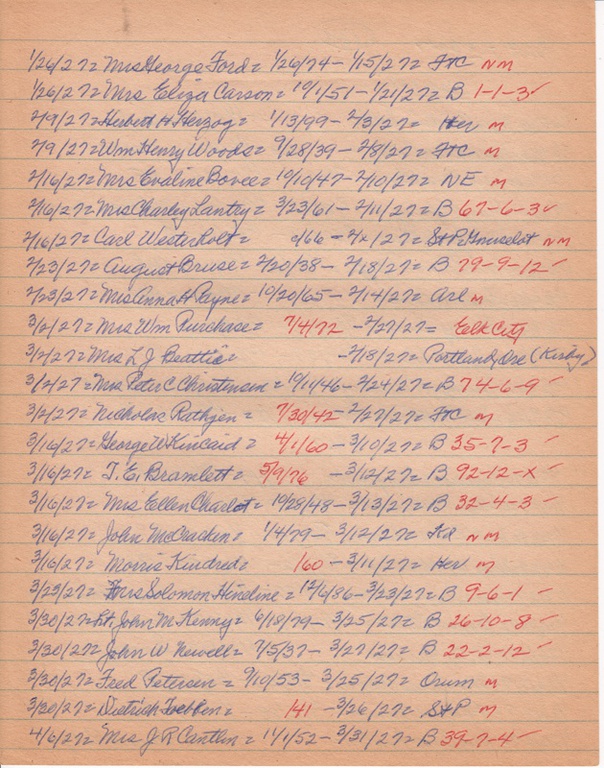 1/26/27= Mrs George Ford= 1/26/74 - 1/15/27= FtC NM
1/26/27= Mrs Eliza Carson= 10/1/51 - 1/21/27= B 1-1-3✓
2/9/27= Herbert H Herzog= 1/13/99 - 2/3/27= Her M
2/9/27= Wm Henry Woods= 9/28/39 - 2/8/27= FtC M
2/16/27= Mrs Evaline Bovee= 10/10/47 - 2/10/27= NE M
2/16/27= Mrs Charley Lantry= 3/23/61 - 2/11/27= B 67-6-3✓
2/16/27= Carl Westerholt= c/66 - 2/x/27= St P= NM
2/23/27= August Bruse= 2/20/38 - 2/18/27= B 79-9-12✓
2/23/27= Mrs Anna H Payne= 10/20/65 - 2/14/27= Arl M
3/2/27= Mrs Wm Purchase= 7/4/72 - 2/27/27= Elk City
3/2/27= Mrs L J Beattie= - 2/18/27= Portland, Ore (Kirby)
3/2/27= Mrs Peter C Christensen= 10/11/46 - 2/24/27= B 74-6-9✓
3/2/27= Nicholas Rathjen= 7/30/42 - 2/27/27= FtC M
3/16/27= George W Kincaid= 4/1/60 - 3/10/27= B 35-7-3✓
3/16/27= T. E. Bramlett= 5/9/76 - 3/12/27= B 92-12-x✓
3/16/27= Mrs Ellen Charlot= 10/28/48 - 3/13/27= B 32-4-3✓
3/16/27= John McCracken= 1/4/79 - 3/12/27= Kd NM
3/16/27= Morris Kindred= 160 - 3/11/27= Her M
3/23/27= Mrs Solomon Hineline= 12/6/86 - 3/23/27= B 9-6-1✓
3/30/27= Lt. John M Kenny= 6/18/79 - 3/25/27= B 26-10-8✓
3/30/27= John W Newell= 7/5/37 - 3/27/27= B 22-2-12✓
3/30/27= Fred Petersen= 9/10/53 - 3/25/27= Orum M
3/30/27= Dietrich 141 - 3/26/27= St P M
4/6/27= Mrs J R Cantlin= 11/1/52 - 3/31/27= B 39-7-4✓